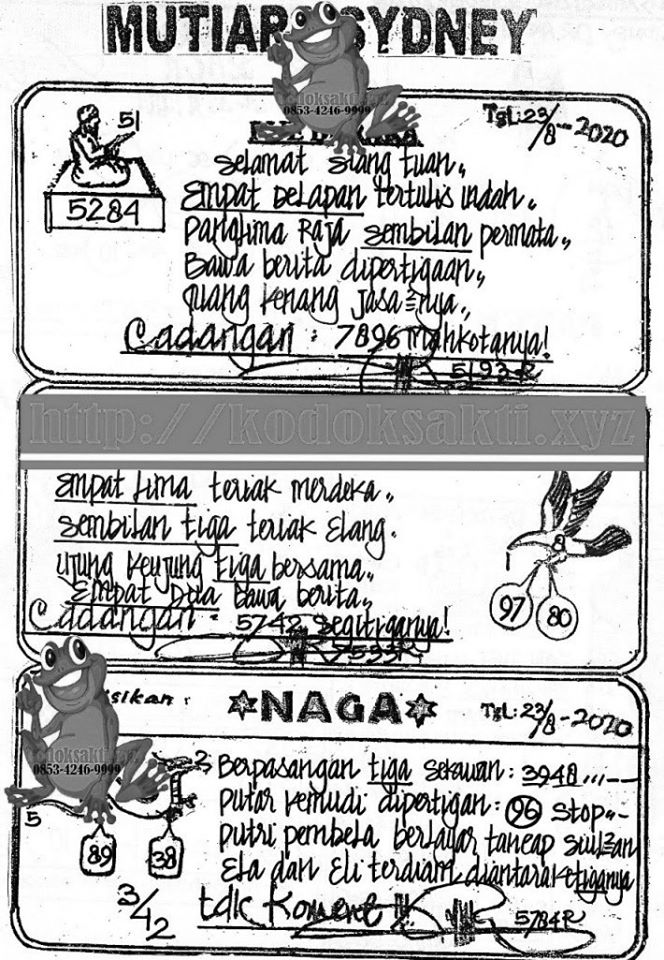 MUTIAR SYDNEY
kodoksakti.xyz
0853-4246-9999
TgL: 23/8-2020
51
5284
selamat siang tuan,,
Empat Delapan tertulis indah,,
Panglima Raja sembilan permata,,
Bawa berita dipertigaan,,
Juang kenang jasa nya,,
Cadangan : 7896 mahkotanya!
5193R
http://kodoksakti.xyz
Empat Lima teriak merdeka,,
sembilan tiga teriak Elang.
ujung keujung tiga bersama,,
Empat Dua Bawa berita,,
Cadangan : 5742 segitiganya!
7533R
8
97
80
sikan :
NAGA
TgL: 23/8-2020
kodoksakti.xyz
0853-4246-9999
Berpasangan tiga sekawan : 3948
putar kemudi dipertigan : 96 stop
putri pembela berlayar tancap
Ela dan Eli terdiam diantara ketiganya
tdk Koment
5784R
2
5
89
38
3/42